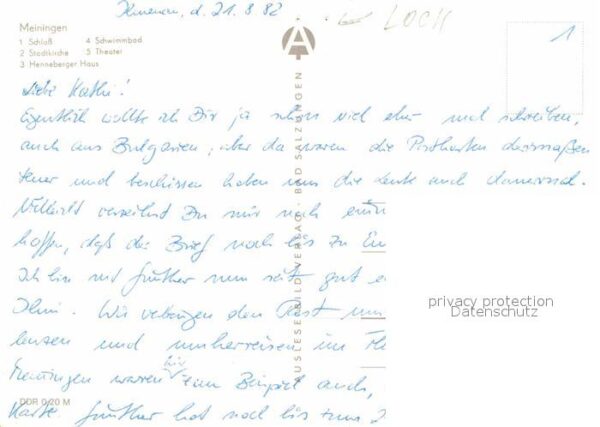 Ilmenau, d. 21.8.82
LOCH
Meiningen
1 Schloß 4 Schwimmbad
2 Stadtkirche 5 Theater
3 Henneberger Haus
1
Liebe Kathi!
Eigentlich wollte ich Dir ja schon viel eher mal schreiben,
auch aus Bulgarien, aber da waren die Postkarten dermaßen
teuer und beschissen haben uns die Leute auch dauernd.
Vielleicht verzeihst Du mir noch
hoffen, daß die Brief noch bis zu
Ich bin mit Günther nun seit gut
Ilm. Wir verbringen den Rest
und umherreisen im
Meiningen waren wir zum Beispiel auch,
Karte. Günther hat noch bis zum
AUSLESE-BILD-VERLAG · BAD SALZUNGEN
DDR 0,20 M
privacy protection
Datenschutz